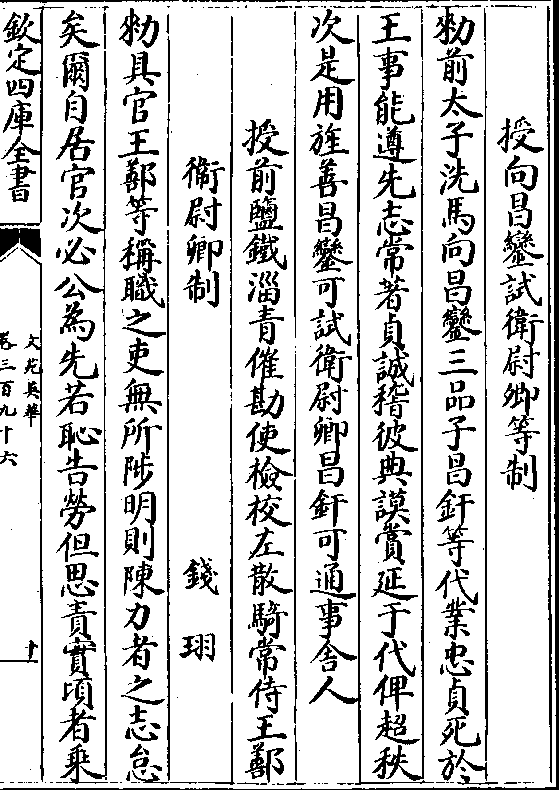 授向昌鑾試衛尉卿等制
勑前太子洗馬向昌鑾三品子昌釬等代業忠貞死於
王事能遵先志常著貞誠稽彼典謨賞延于代俾超秩
次是用旌善昌鑾可試衛尉卿昌釬可通事舍人
授前鹽鐵淄青傕勘使檢校左散騎常侍王鄯
衛尉卿制 錢珝
勑具官王鄯等稱職之吏無所陟明則陳力者之志怠
矣爾自居官次必公為先若恥告勞但思責實頃者乗
欽定四庫全書
文苑英華
卷三百九十六
十一